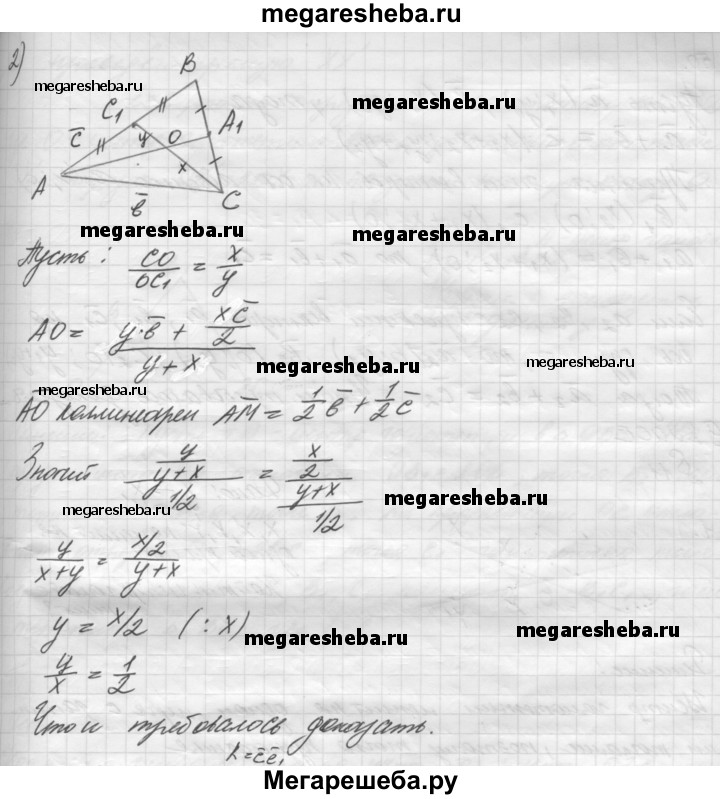 megaresheba.ru
2)
B
megaresheba.ru
megaresheba.ru
C₁
c̄
y O A₁
x
A
C
b̄
megaresheba.ru
megaresheba.ru
Пусть: CO/OC₁ = x/y
AO = (y·b̄ + xc̄/2)/(y+x)
megaresheba.ru
megaresheba.ru
megaresheba.ru
AO коллинеарен AM̄ = 1/2 b̄ + 1/2 c̄
Значит (y/(y+x))/(1/2) = ((x/2)/(y+x))/(1/2)
megaresheba.ru
megaresheba.ru
y/(x+y) = (x/2)/(y+x)
y = x/2 (: x)
megaresheba.ru
megaresheba.ru
y/x = 1/2
Что и требовалось доказать.
Мегарешеба.ру